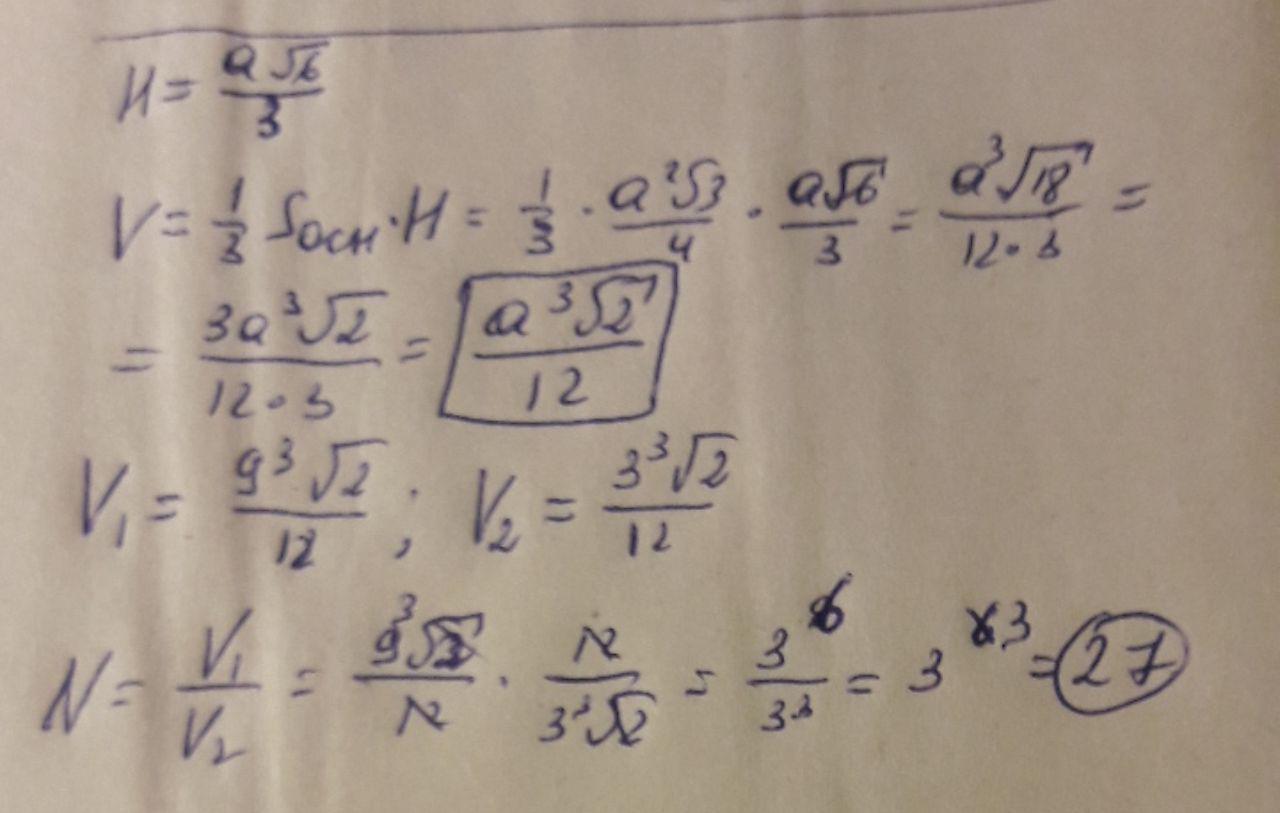 H = a√6/3
V = 1/3 Sосн·H = 1/3 · a²√3/4 · a√6/3 = a³√18/12·3 =
= 3a³√2/12·3 = a³√2/12
V₁ = 9³√2/12 ; V₂ = 3³√2/12
N = V₁/V₂ = 9³√2/12 · 12/3³√2 = 3⁶/3³ = 3³ = 27